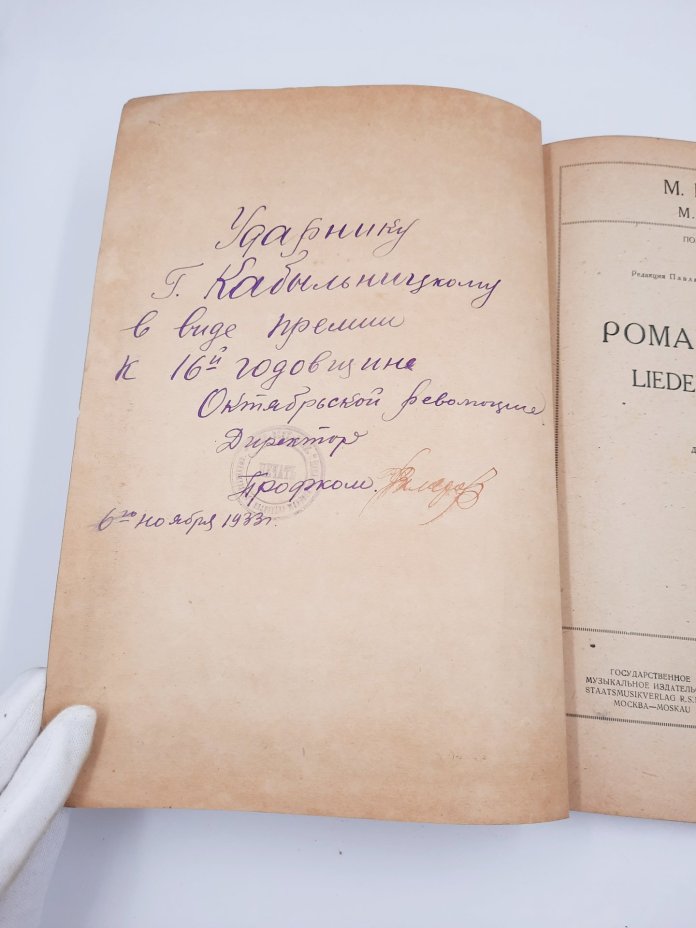 Ударнику
Г. Кабыльницкому
в виде премии
к 16й годовщине
Октябрьской революции
Директор
Профком.
6го ноября 1933г.
М.
М.
ПО
Редакция Павла
РОМА
LIEDE
Д
ГОСУДАРСТВЕННОЕ
МУЗЫКАЛЬНОЕ ИЗДАТЕЛЬС
STAATSMUSIKVERLAG R.S.
МОСКВА—MOSKAU